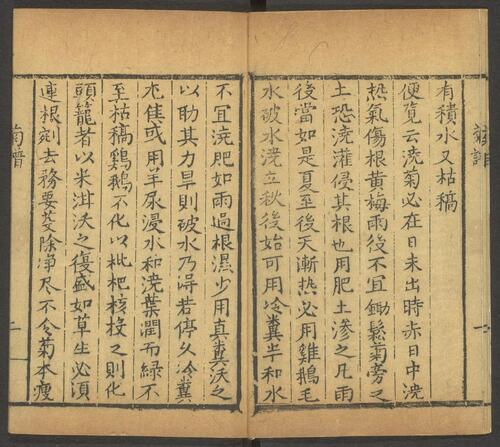 有積水又枯稿
便覧云澆菊必在日未出時赤日中澆
热氣傷根黄梅雨後不宜鋤鬆菊旁之
土恐澆灌侵其根也用肥土滲之凡雨
後當如是夏至後天漸热必用雞鵝毛
水破水澆立秋後始可用冷糞半和水
不宜澆肥如雨過根濕少用真糞沃之
以助其力旱則破水乃得若停久冷糞
尤隹或用羊尿浸水和澆葉潤而綠不
至枯稿鷄鵝不化以枇杷核投之則化
頭籠者以米泔沃之復盛如草生必湏
連根剜去務要芟除净尽不令菊本瘦
二
一